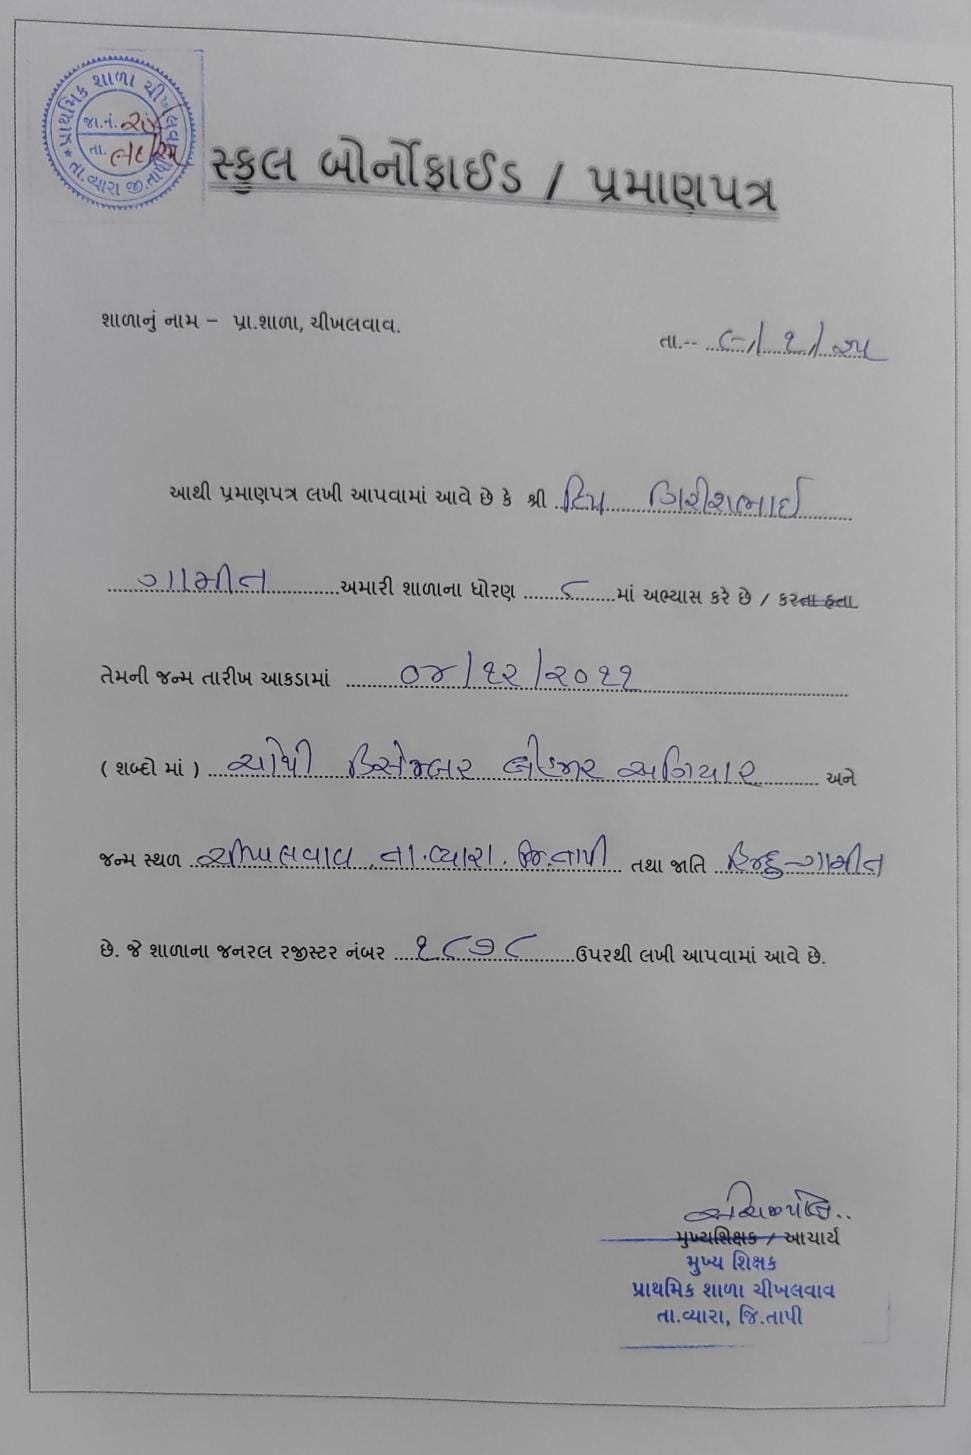 પ્રાથમિક શાળા ચીખલવાવ
જા.નં.
તા.
તા.વ્યારા જી.તાપી
સ્કુલ બોર્નોફાઈડ / પ્રમાણપત્ર
શાળાનું નામ – પ્રા.શાળા, ચીખલવાવ.
તા.-- ૮/૧/૨૫
આથી પ્રમાણપત્ર લખી આપવામાં આવે છે કે શ્રી દિપ ગિરીશભાઈ
ગામીત અમારી શાળાના ધોરણ ૮ માં અભ્યાસ કરે છે / કરતા હતા
તેમની જન્મ તારીખ આકડામાં ૦૪/૧૨/૨૦૧૧
( શબ્દો માં ) ચોથી ડિસેમ્બર બે હજાર અગિયાર અને
જન્મ સ્થળ ચીખલવાવ તા.વ્યારા. જિ.તાપી તથા જાતિ હિન્દુ-ગામીત
છે. જે શાળાના જનરલ રજીસ્ટર નંબર ૧૮૭૮ ઉપરથી લખી આપવામાં આવે છે.
મુખ્યશિક્ષક / આચાર્ય
મુખ્ય શિક્ષક
પ્રાથમિક શાળા ચીખલવાવ
તા.વ્યારા, જિ.તાપી